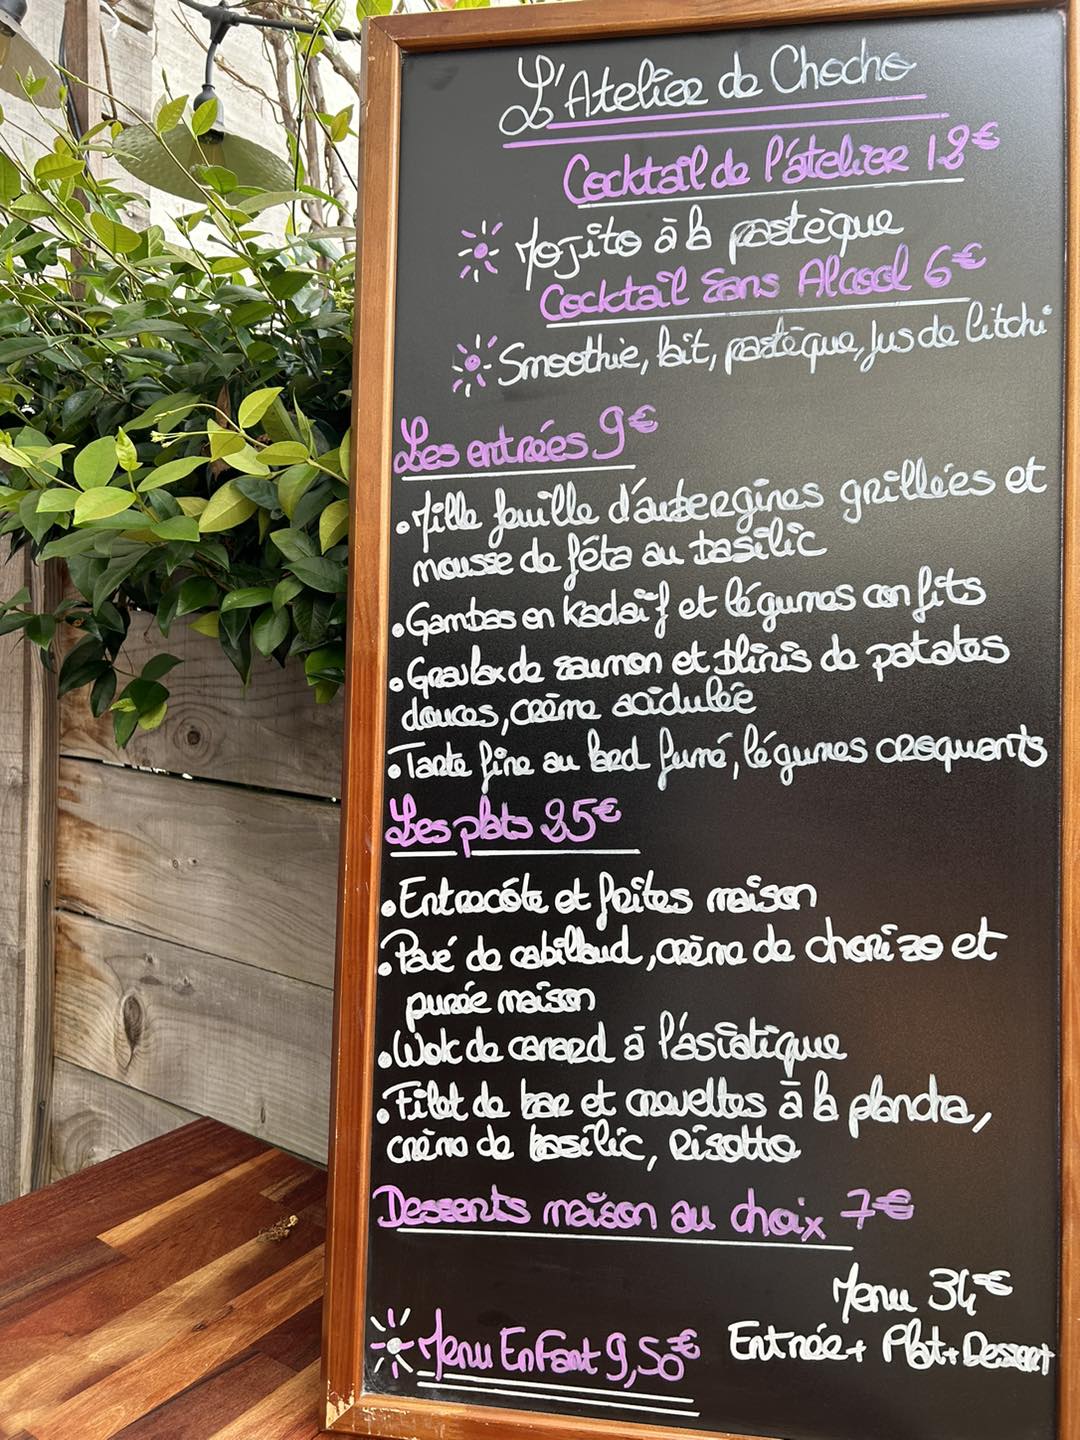 L'Atelier de Chocho
Cocktail de l'atelier 12€
Mojito à la pastèque
Cocktail Sans Alcool 6€
Smoothie, lait, pastèque, jus de litchi
Les entrées 9€
• Mille feuille d'aubergines grillées et
mousse de féta au basilic
• Gambas en Kadaïf et légumes confits
• Gravlax de saumon et blinis de patates
douces, crème acidulée
• Tarte fine au lard fumé, légumes croquants
Les plats 25€
• Entrecôte et frites maison
• Pavé de cabillaud, crème de chorizo et
purée maison
• Wok de canard à l'asiatique
• Filet de bar et crevettes à la plancha,
crème de basilic, Risotto
Desserts maison au choix 7€
Menu 34€
Entrée + Plat + Dessert
Menu Enfant 9,50€